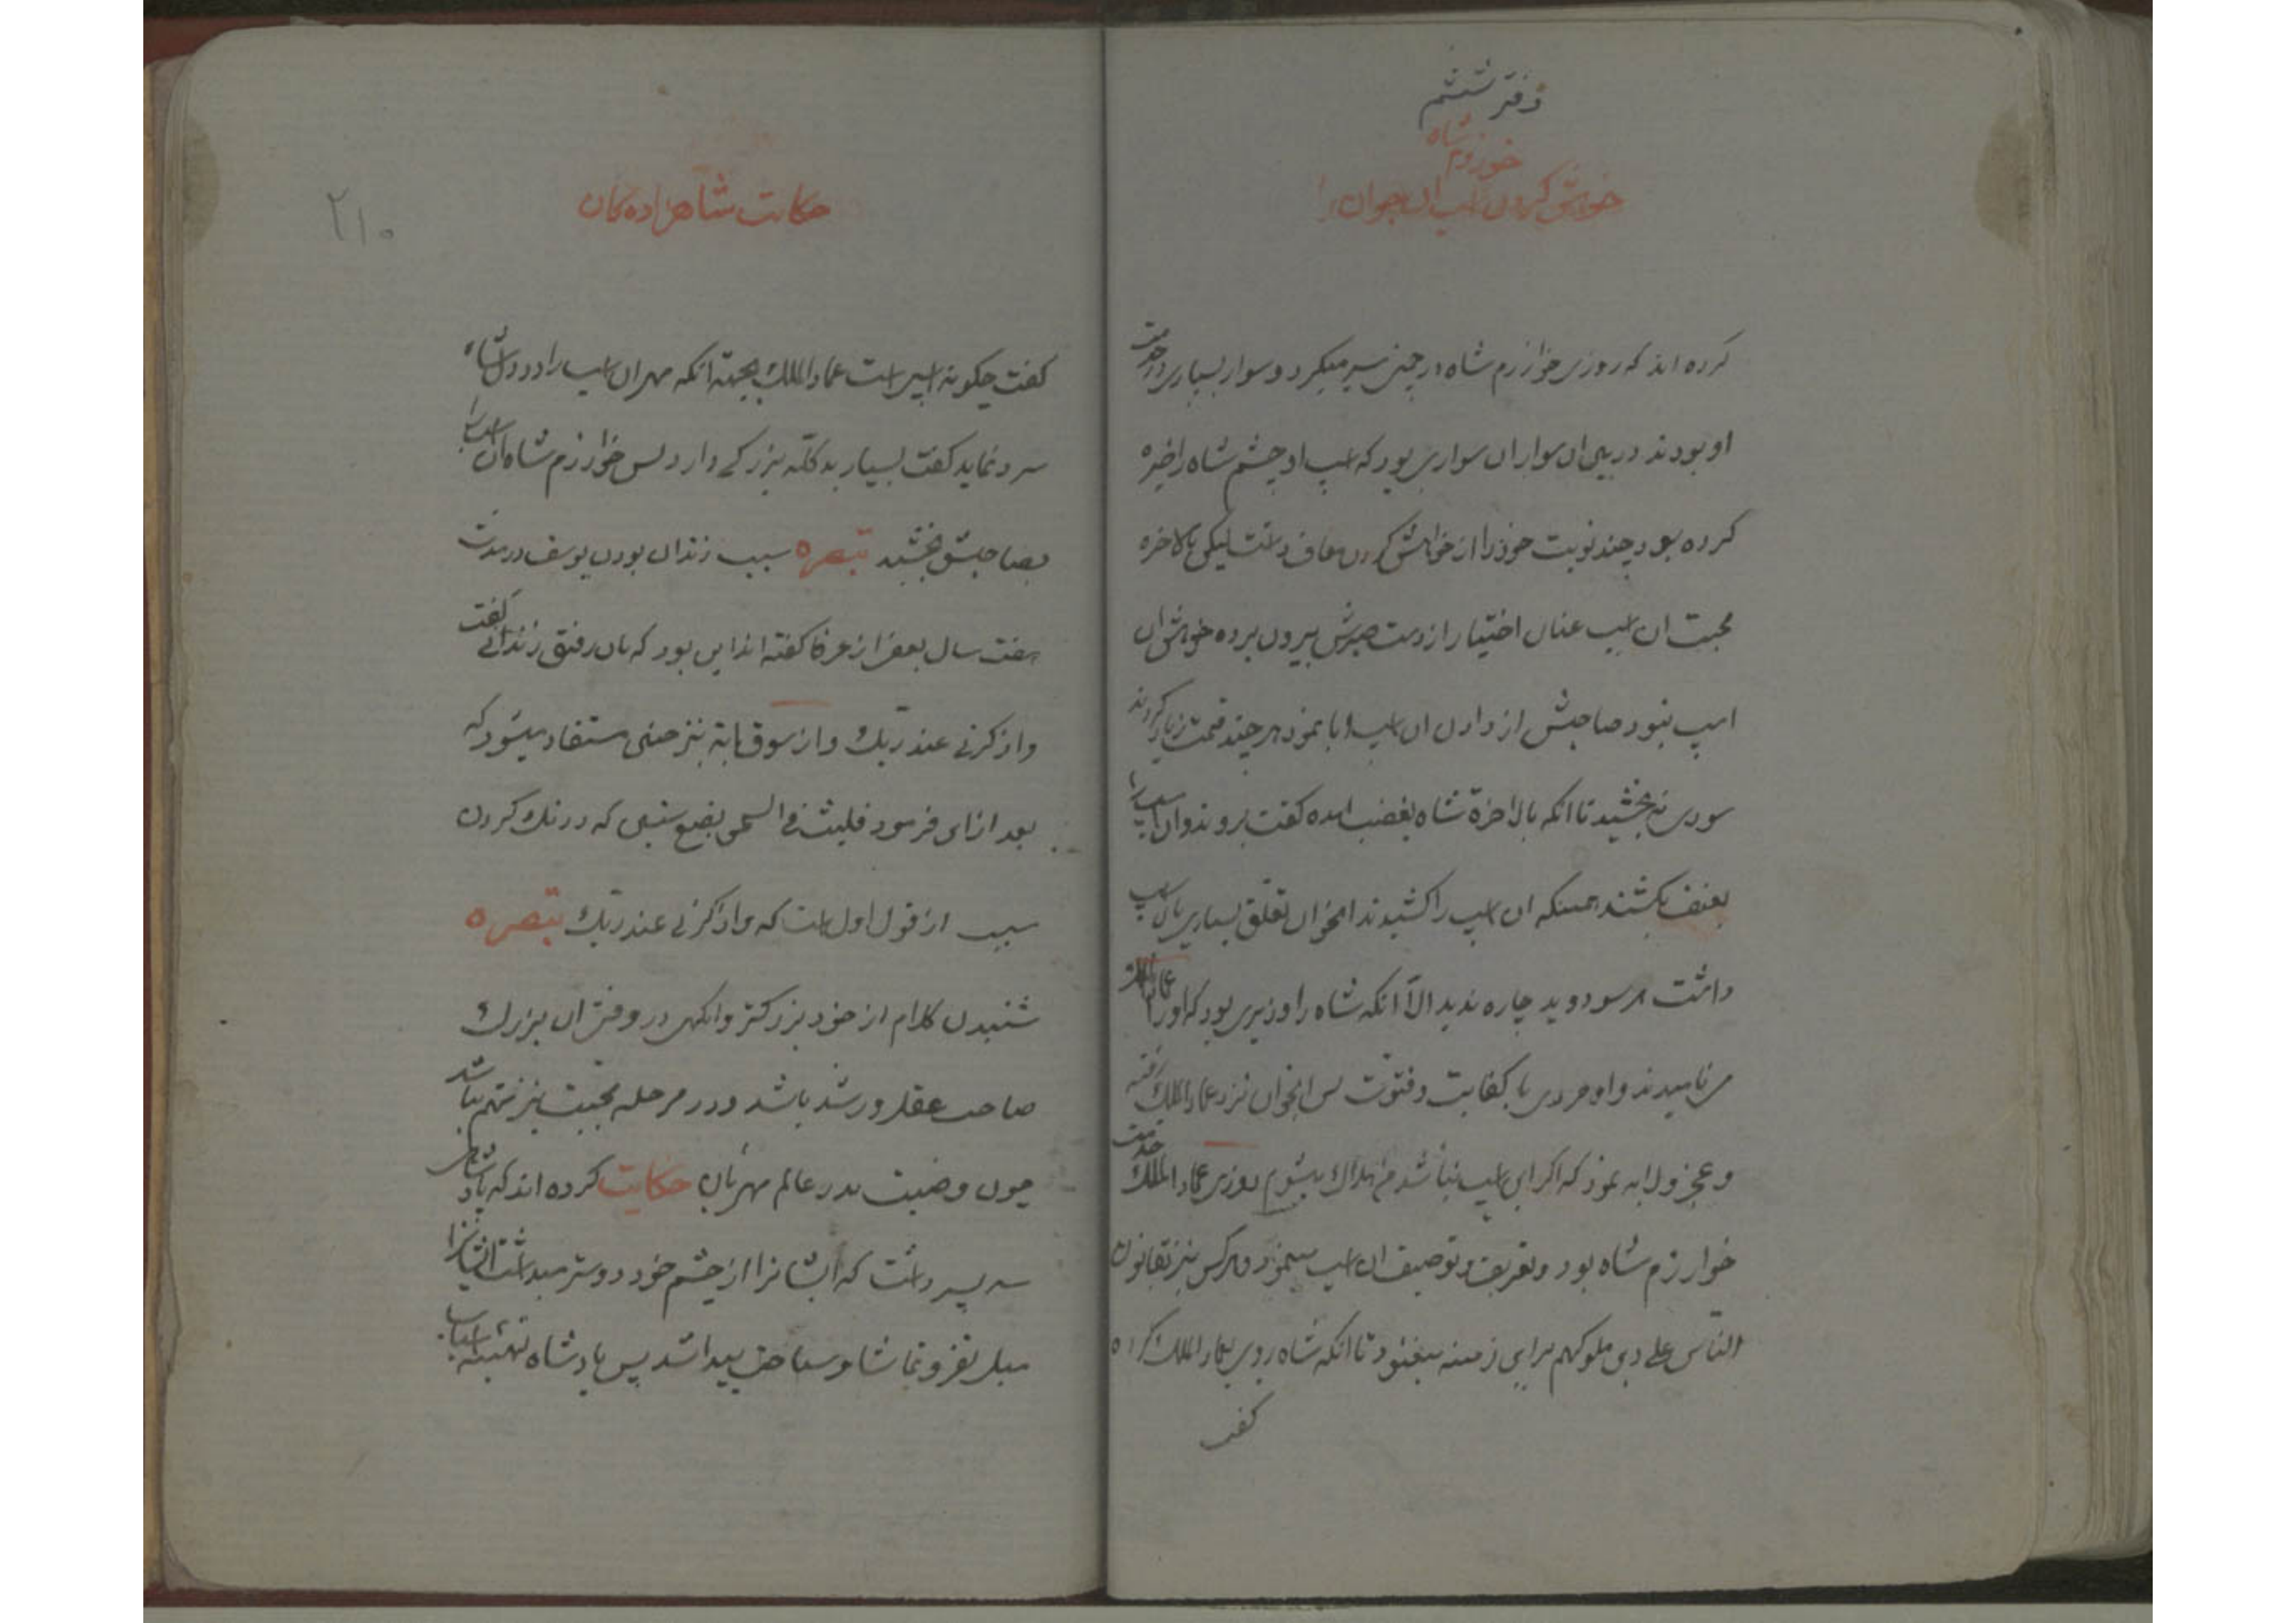 دفتر ششم
خوارزم شاه
خواهش کردن اسب ان جوان را
کرده اند که روزی خوارزم شاه در چمنی سیر میکرد و سوار بسیاری در خدمت
او بودند در بین ان سواران سواری بود که اسب او چشم شاه را خیره
کرده بود چند نوبت خود را از خواهش کردن معاف داشت لیکن بالاخره
محبت ان اسب عنان اختیار از دست صبرش بیرون برده خواهش ان
اسپ نمود صاحبش از دادن ان اسب ابا نمود هر چند قیمت زیاد کردند
سودی نه بخشید تا انکه بالاخرة شاه بغضب امده گفت بروند و ان اسب را
بعنف بکشند همینکه ان اسب را کشیدند انجوان تعلق بسیاری بان اسب
داشت هر سو دوید چاره ندید الّا انکه شاه را وزیری بود که او را عماد الملک
می نامیدند و او مردی با کفایت و فتوت پس انجوان نزد عماد الملک رفته
و عجز و لابه نمود که اگر این اسب نباشد من هلاک میشوم روزی عماد الملک خدمت
خوارزم شاه بود و تعریف و توصیف ان اسب مینمود و هر کس نیز بقانون
النّاس علی دین ملوکهم براین زمینه میغنود تا انکه شاه روی بعماد الملک کرده
گفت
حکایت شاهزاده کان
۲۱۰
گفت چگونه اسبی است عماد الملک بجهة انکه مهر ان اسب را در دل شاه
سرد نماید گفت بسیار بد کلّه بزرگی دارد پس خوارزم شاه ان اسب را
بصاحبش بخشید تبصره سبب زندان بودن یوسف در مدت
هفت سال بعضی از عرفا گفته اند این بود که بان رفیق زندانی گفت
واذکرنی عند ربّک و از سوق ایة نیز همین مستفاد میشود که
بعد از ان فرمود فلبث فی السجن بضع سنین که درنگ کردن
سبب از قول اول است که واذکرنی عند ربّک تبصره
شنیدن کلام از خود بزرگتر وانگهی در وقتی ان بزرگ
صاحب عقل و رشد باشد و در مرحله محبت نیز متهم نباشد
چون وصیت پدر عالم مهربان حکایت کرده اند که پادشاهی
سه پسر داشت که ایشانرا از چشم خود دوستر میداشت ایشانرا
میل بفر و تماشا و سیاحت پیدا شد پس پادشاه تهیّئه اسباب